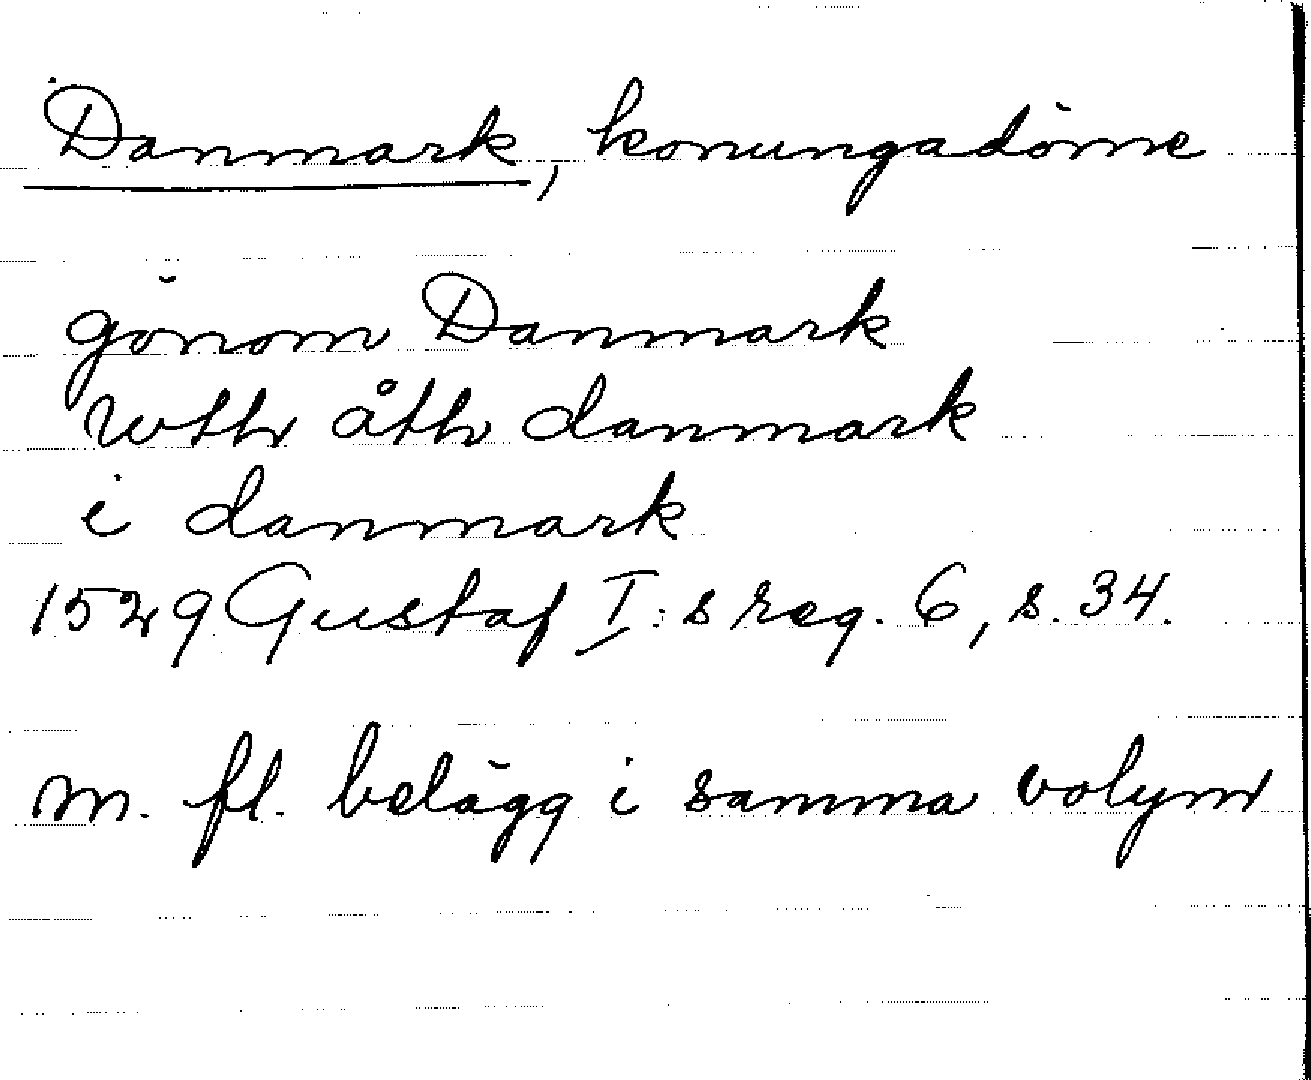 Danmark, konungadöme
gönom Danmark
wth åth danmark
i danmark
1529 Gustaf I:s reg. 6, s. 34.
m. fl. belägg i samma volym